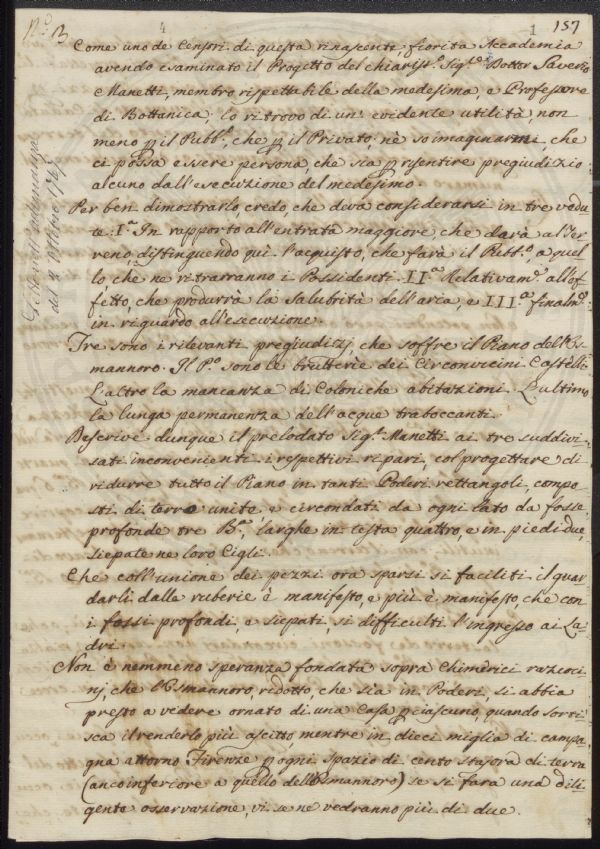 N.º 3
4
1
157
Come uno de Censori di questa rinascente, fiorita Accademia
avendo esaminato il Progetto del chiariss.º Sig.re Dottor Saverio
Manetti, membro rispettabile della medesima, e Professore
di Bottanica; lo ritrovo di un' evidente utilità, non
meno p il Pubb.º, che p il Privato, nè so imaginarmi, che
ci possa essere persona, che sia p risentire pregiudizio
alcuno dall'esecuzione del medesimo.
Per ben dimostrarlo, credo, che deva considerarsi in tre vedu-
te: I.ª In rapporto all'entrata maggiore, che darà al Ter-
reno, distinguendo quì l'acquisto, che farà il Pubb.º, a quel-
lo, che ne ritrarranno i Possidenti. II.ª Relativam.e all'of-
fetto, che produrrà la salubrità dell'aria, e III.ª finalm.e
in riguardo all'esecuzione.
Tre sono i rilevanti pregiudizj, che soffre il Piano dell'Os-
mannoro. Il P.º sono le brutterìe dei Circonvicini Castelli.
L'altro la mancanza di Coloniche abitazioni. L'ultimo
la lunga permanenza dell'acque traboccanti.
Descrive dunque il prelodato Sig.r Manetti ai tre suddivi-
sati inconvenienti i respettivi ripari, col progettare di
ridurre tutto il Piano in tanti Poderi rettangoli, compo-
sti di terro unito, e circondati da ogni lato da fosse
profonde tre B.a, larghe in testa quattro, e in piedi due,
siepate ne loro Cigli.
Che coll'unione dei pezzi ora sparsi si faciliti il guar-
darli dalle ruberie è manifesto, e più è manifesto, che con
i fossi profondi, e siepati, si difficulti l'ingresso ai La-
dri.
Non è nemmeno speranza fondata sopra Chimerici razioci-
nj, che l'Osmannoro, ridotto, che sia in Poderi, si abbia
presto a vedere ornato di una Casa p ciascuno, quando sorti-
sca il renderlo più asciutto, mentre in dieci miglia di campa-
gna attorno Firenze p ogni spazio di cento stajora di terra
(anco inferiore a quello dell'Osmannoro) se si farà una dili-
gente osservazione, vi se ne vedranno più di due.